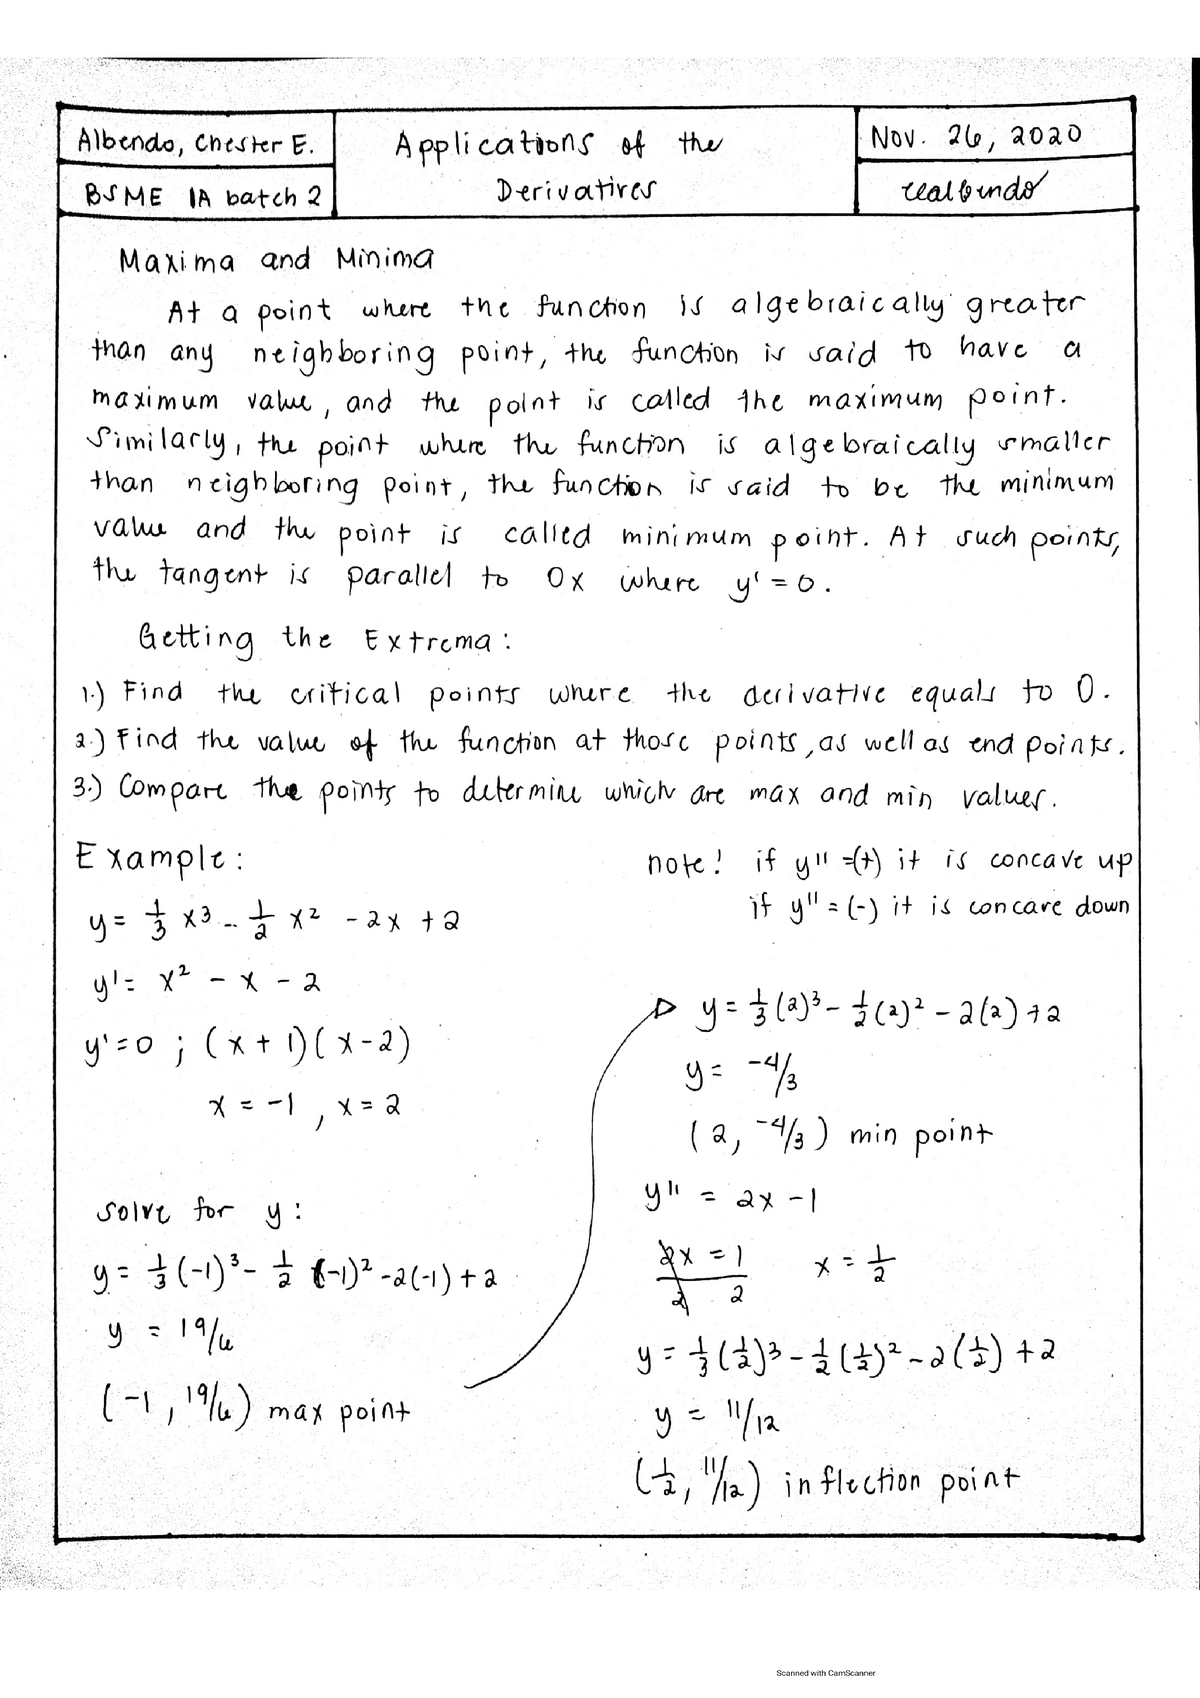 Albendo, Chester E.
BSME 1A batch 2
Applications of the
Derivatives
Nov. 26, 2020
cealbendo
Maxima and Minima
At a point where the function is algebraically greater
than any neighboring point, the function is said to have a
maximum value, and the point is called the maximum point.
Similarly, the point where the function is algebraically smaller
than neighboring point, the function is said to be the minimum
value and the point is called minimum point. At such points,
the tangent is parallel to Ox where y' = 0.
Getting the Extrema:
1.) Find the critical points where the derivative equals to 0.
2.) Find the value of the function at those points, as well as end points.
3.) Compare the points to determine which are max and min values.
Example:
y = 1/3 x³ - 1/2 x² - 2x + 2
y' = x² - x - 2
y' = 0 ; (x + 1)(x - 2)
x = -1 , x = 2
solve for y:
y = 1/3 (-1)³ - 1/2 (-1)² - 2(-1) + 2
y = 19/6
(-1, 19/6) max point
note! if y'' = (+) it is concave up
if y'' = (-) it is concave down
y = 1/3 (2)³ - 1/2 (2)² - 2(2) + 2
y = -4/3
(2, -4/3) min point
y'' = 2x - 1
2x = 1 x = 1/2
2 2
y = 1/3 (1/2)³ - 1/2 (1/2)² - 2(1/2) + 2
y = 11/12
(1/2, 11/12) inflection point
Scanned with CamScanner